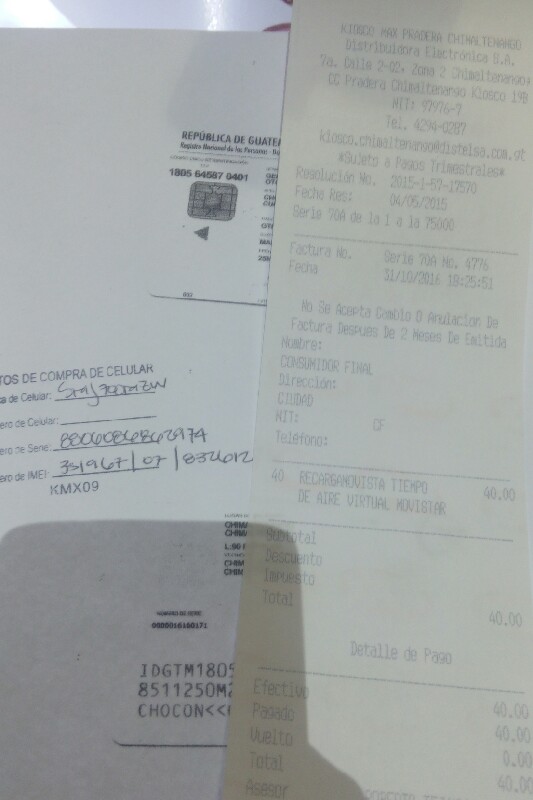 REPÚBLICA DE GUATE
Registro Nacional de las Personas
1805 64587 0401
TOS DE COMPRA DE CELULAR
ca de Celular:
ero de Celular:
ero de Serie:
ero de IMEI: 351967/07/832612
KMX09
CHIMA
CHIM
L:90 F
CHIM
CHIM
NUMERO DE SERIE
0000016160171
IDGTM1805
8511250M2
CHOCON<<
KIOSCO MAX PRADERA CHIMALTENANGO
Distribuidora Electrónica S.A.
7a. Calle 2-02, Zona 2 Chimaltenango
CC Pradera Chimaltenango Kiosco 19B
NIT: 97776-7
Tel. 4294-0287
kiosco.chimaltenango@distelsa.com.gt
*Sujeto a Pagos Trimestrales*
Resolución No. 2015-1-57-17570
Fecha Res: 04/05/2015
Serie 70A de la 1 a la 75000
Factura No. Serie 70A No. 4776
Fecha 31/10/2016 18:25:51
No Se Acepta Cambio O Anulacion De
Factura Despues De 2 Meses De Emitida
Nombre:
CONSUMIDOR FINAL
Dirección:
CIUDAD
NIT: CF
Teléfono:
40 RECARGANOVISTA TIEMPO 40.00
DE AIRE VIRTUAL MOVISTAR
Subtotal
Descuento
Impuesto
Total
40.00
Detalle de Pago
Efectivo 40.00
Pagado 40.00
Vuelto 0.00
Total 40.00
Asesor